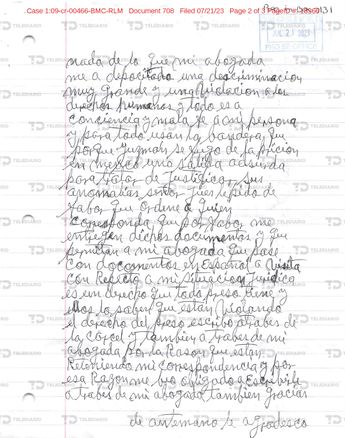 Case 1:09-cr-00466-BMC-RLM Document 708 Filed 07/21/23 Page 2 of 3 PageID #:
JUL 21 2023
PRO SE OFFICE
nada de lo que mi abogada
me a depocitado una descriminacion
muy grande y una violacion a los
derechos humanos y todo es a
conciencia y mala fe a mi persona
y para todo usan la bandera que
porque Guzman se fugo de la pricion
en Mexico una salida absurda
para tratar de Justificar sus
anomalias señor jues le pido de
fabor que ordene a quien
corresponda que por fabor me
entregen dichos documentos y que
permitan a mi abogada que pase
con documentos en Español a visita
con Respecto a mi situacion Juridica
es un derecho que todo preso tiene y
ellos lo saben que estan violando
el derecho del preso escribo atrabes de
la carcel y tambien atrabes de mi
abogada por la Rason que estan
Reteniendo mi correspondencia y por
esa Razon me beo obligado a Escrivirle
atrabes de mi abogada tambien gracias
de antemano le agradesco